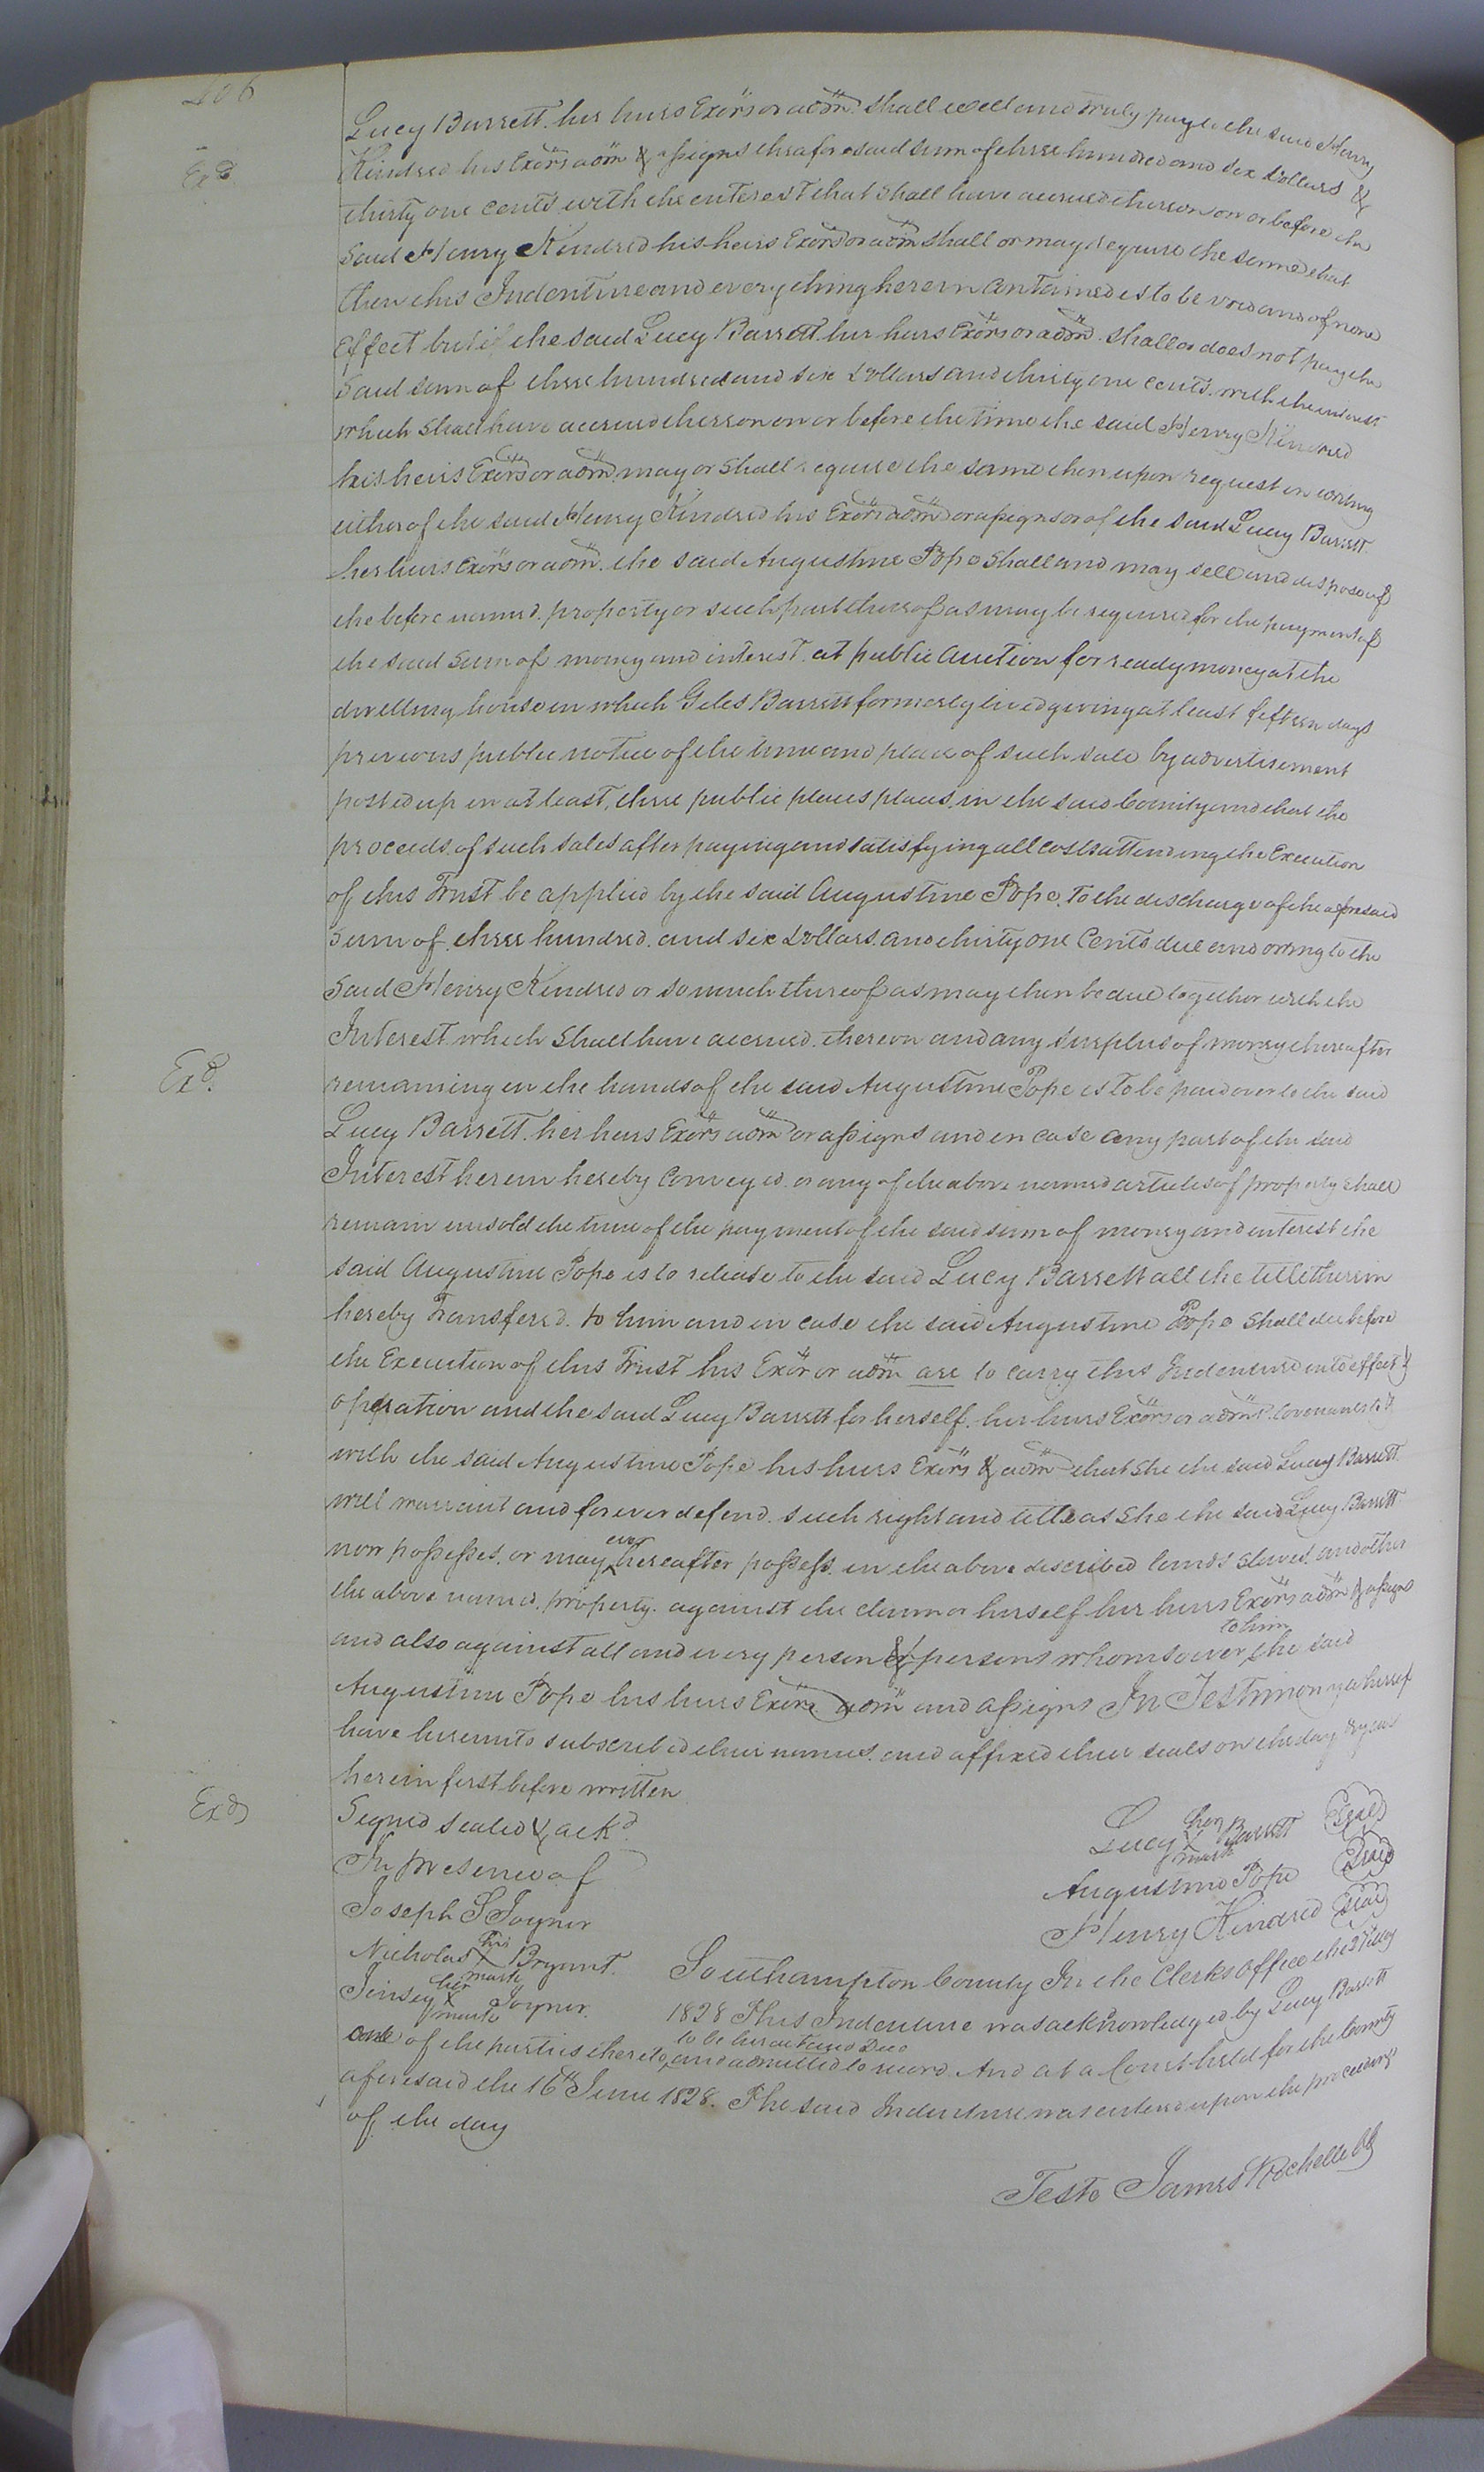 406
Lucy Barrett. her heirs Exo͞rs or ado͞m. shall well and truly pay to the said Henry
Exd.
Kindred his Exo͞rs ado͞m & assigns the aforesaid sum of three hundred and six dollars &
thirty one cents with the enterest that shall have accrued thereon on or before the
said Henry Kindred his heirs Exo͞rs or ado͞m shall or may require the same that
then this Indenture and every thing herein contained is to be void and of none
Effect but if the said Lucy Barrett her heirs Exo͞rs or ado͞m. shall or does not pay the
said sum of three hundred and six dollars and thirty one cents. with the interest
which shall have accrued thereon on or before the time the said Henry Kindred
his heirs Exo͞rs or ado͞m. may or shall require the same then upon request in writing
either of the said Henry Kindred his Exo͞rs ado͞m or assigns or of the said Lucy Barrett.
her heirs Exo͞rs or ado͞m. the said Augustine Pope shall and may sell and dispose of
the before named. property or such part thereof as may be required for the payment of
the said sum of money and interest. at public auction for ready money at the
dwelling house in which Giles Barrett formerly lived giving at least fifteen days
previous public notice of the time and place of such sale by advertisement
posted up in at least, three public places places in the said County and that the
proceeds. of such sales after paying and satisfying all costs attending the Execution
of this Trust be applied by the said Augustine Pope, To the discharge of the aforesaid
sum of three hundred. and six dollars. and thirty one Cents due and owing to the
said Henry Kindred or so much thereof as may then be due together with the
Interest which shall have accrued. thereon and any surplus of money thereafter
Exd.
remaining in the hands of the said Augustine Pope is to be paid over to the said
Lucy Barrett. her heirs Exo͞rs ado͞m or assigns and in case any part of the said
Interest herein hereby Conveyed. or any of the above named articles of property shall
remain unsold the time of the payment of the said sum of money and interest the
said Augustine Pope is to release to the said Lucy Barrett all the title therein
hereby Transfered. to him and in case the said Augustine Pope shall die before
the Execution of this Trust his Exo͞r or ado͞m are to carry this Indenture into effect &
operation and the said Lucy Barrett for herself. her heirs Exo͞rs or ado͞m. covenants to &
with the said Augustine Pope his heirs Exo͞rs & ado͞m that she the said Lucy Barrett.
will warrant and forever defend. such right and title as she the said Lucy Barrett
ever
now possesses. or may hereafter possess. in the above described lands slaves. and other
the above named. property. against the claim or herself her heirs Exo͞rs ado͞m & assigns
to him
and also against all and every person & persons whomsoever the said
Augustine Pope his heirs Exo͞rs ado͞m and assigns In Testimony whereof
have hereunto subscribed their names. and affixed their seals on the day & year
herein first before written
Exd
Signed sealed & ackd.
In presence of
Joseph S Joyner
Nicholas his X mark Bryant.
Jinsey her X mark Joyner.
Lucy her X mark Barrett (Seal)
Augustine Pope (Seal)
Henry Kindred (Seal)
Southampton County In the Clerks office the
1828 This Indenture was acknowledged by Lucy Barrett
to be her act and Deed
one of the parties thereto, and admitted to record. And at a Court held for the County
aforesaid the 16th June 1828. The said Indenture was entered upon the proceedings
of the day
Teste James Rochelle CC